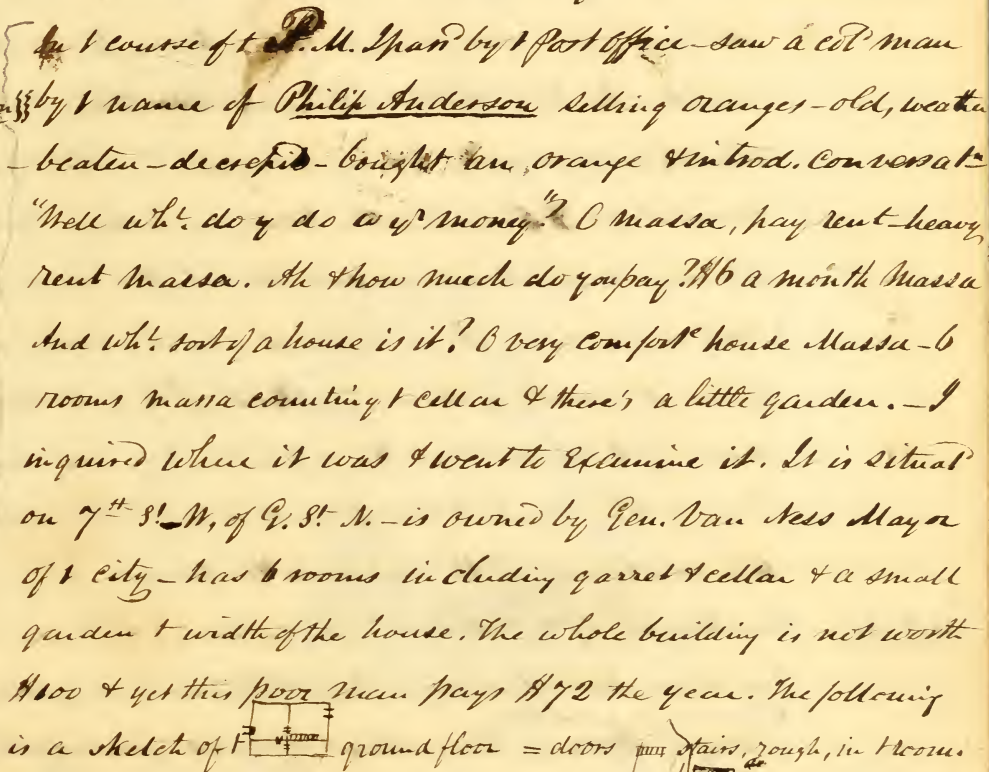 In t course of t P. M. I pass'd by t Post Office - saw a col'd man
by t name of Philip Anderson selling oranges - old, weather
-beaten - decrepid - bought an orange & introd. conversatn
"Well wht. do y do w yr money"? O massa, pay rent - heavy
rent massa. Ah & how much do you pay? $6 a month Massa
And wht. sort of a house is it? O very comforte house Massa - 6
rooms massa counting t cellar & there's a little garden. - I
inquired where it was & went to Examine it. It is situatd
on 7th St. W. of G. St. N. - is owned by Gen. Van Ness Mayor
of t city - has 6 rooms including garret & cellar & a small
garden t width of the house. The whole building is not worth
$100 & yet this poor man pays $72 the year. The following
is a sketch of t ground floor = doors stairs, rough, in t room.